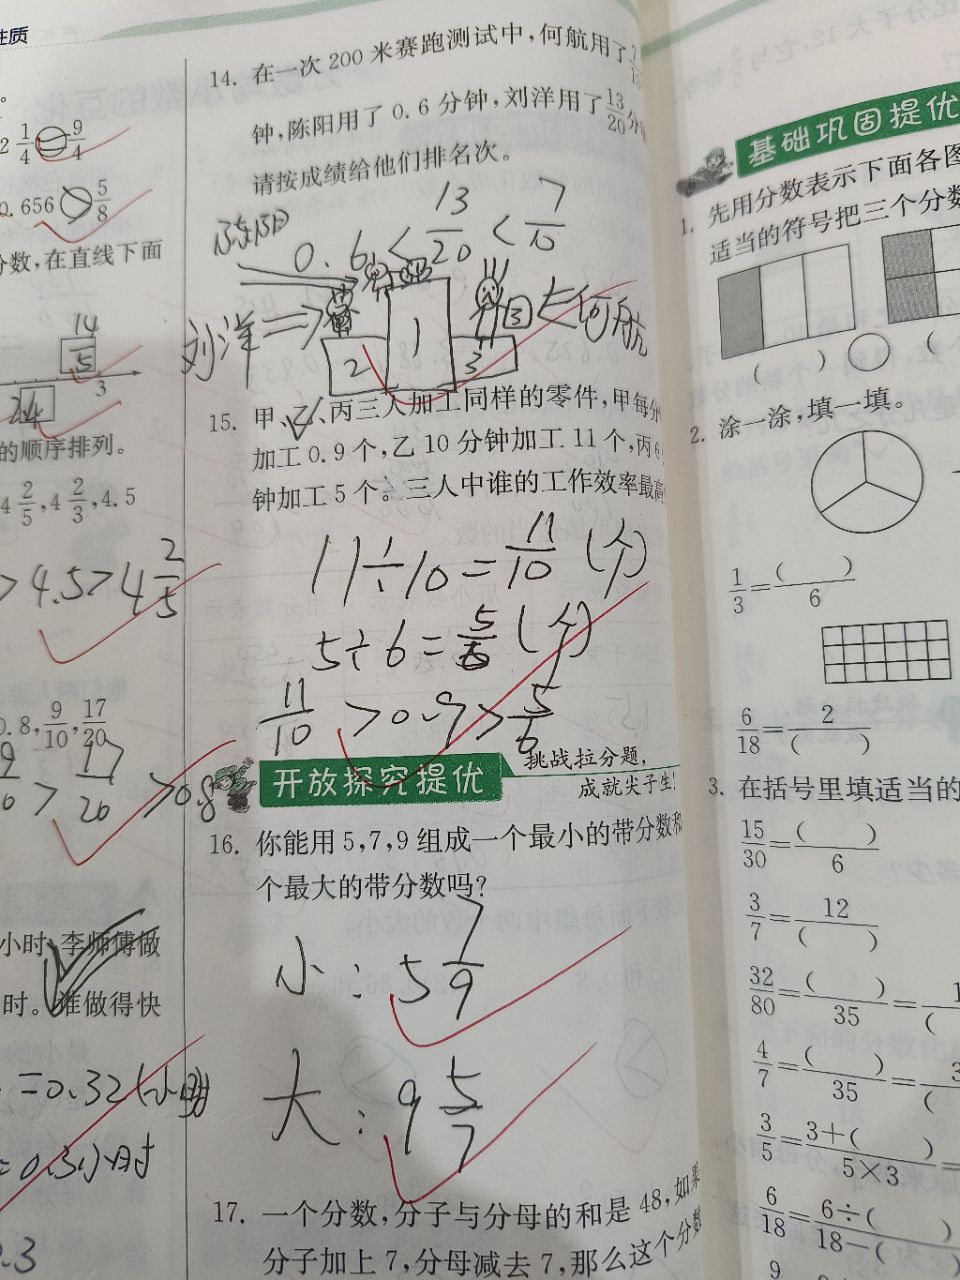 性质
2 1/4 = 9/4
0.656 > 5/8
分数,在直线下面
14
5
3
24
的顺序排列。
4 2/5, 4 2/3, 4.5
> 4.5 > 4 2/5
0.8, 9/10, 17/20
> 17/20 > 0.8
小时,李师傅做
时。谁做得快
=0.32(小时)
=0.3小时
14. 在一次 200 米赛跑测试中,何航用了
钟,陈阳用了 0.6 分钟,刘洋用了 13/20 分
请按成绩给他们排名次。
陈阳
0.6 < 13/20 < 7/10
刘洋
2
1
3
何航
15. 甲、乙、丙三人加工同样的零件,甲每分
加工 0.9 个,乙 10 分钟加工 11 个,丙 6
钟加工 5 个。三人中谁的工作效率最高
11÷10=11/10(个)
5÷6=5/6(个)
11/10 > 0.9 > 5/6
开放探究提优
挑战拉分题,
成就尖子生!
16. 你能用 5,7,9 组成一个最小的带分数和
个最大的带分数吗?
小: 5 7/9
大: 9 5/7
17. 一个分数,分子与分母的和是 48,如果
分子加上 7,分母减去 7,那么这个分数
基础巩固提优
1. 先用分数表示下面各图
适当的符号把三个分数
( ) ○ (
2. 涂一涂,填一填。
1/3=( )/6
6/18=2/( )
3. 在括号里填适当的
15/30=( )/6
3/7=12/( )
32/80=( )/35=
4/7=( )/35=
3/5=3+( )/5×3=
6/18=6÷( )/18-(